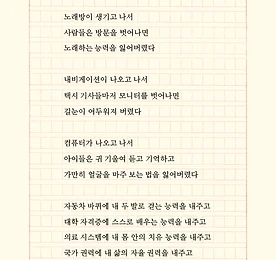 노래방이 생기고 나서
사람들은 방문을 벗어나면
노래하는 능력을 잃어버렸다
내비게이션이 나오고 나서
택시 기사들마저 모니터를 벗어나면
길눈이 어두워져 버렸다
컴퓨터가 나오고 나서
아이들은 귀 기울여 듣고 기억하고
가만히 얼굴을 마주 보는 법을 잃어버렸다
자동차 바퀴에 내 두 발로 걷는 능력을 내주고
대학 자격증에 스스로 배우는 능력을 내주고
의료 시스템에 내 몸 안의 치유 능력을 내주고
국가 권력에 내 삶의 자율 권력을 내주고